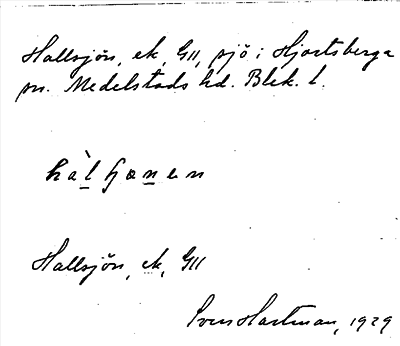 Hallsjön, ek, G11, sjö i Hjortsberga
sn. Medelstads hd. Blek. l.
Hallsjön, ek, G11
Sven Hartman, 1929